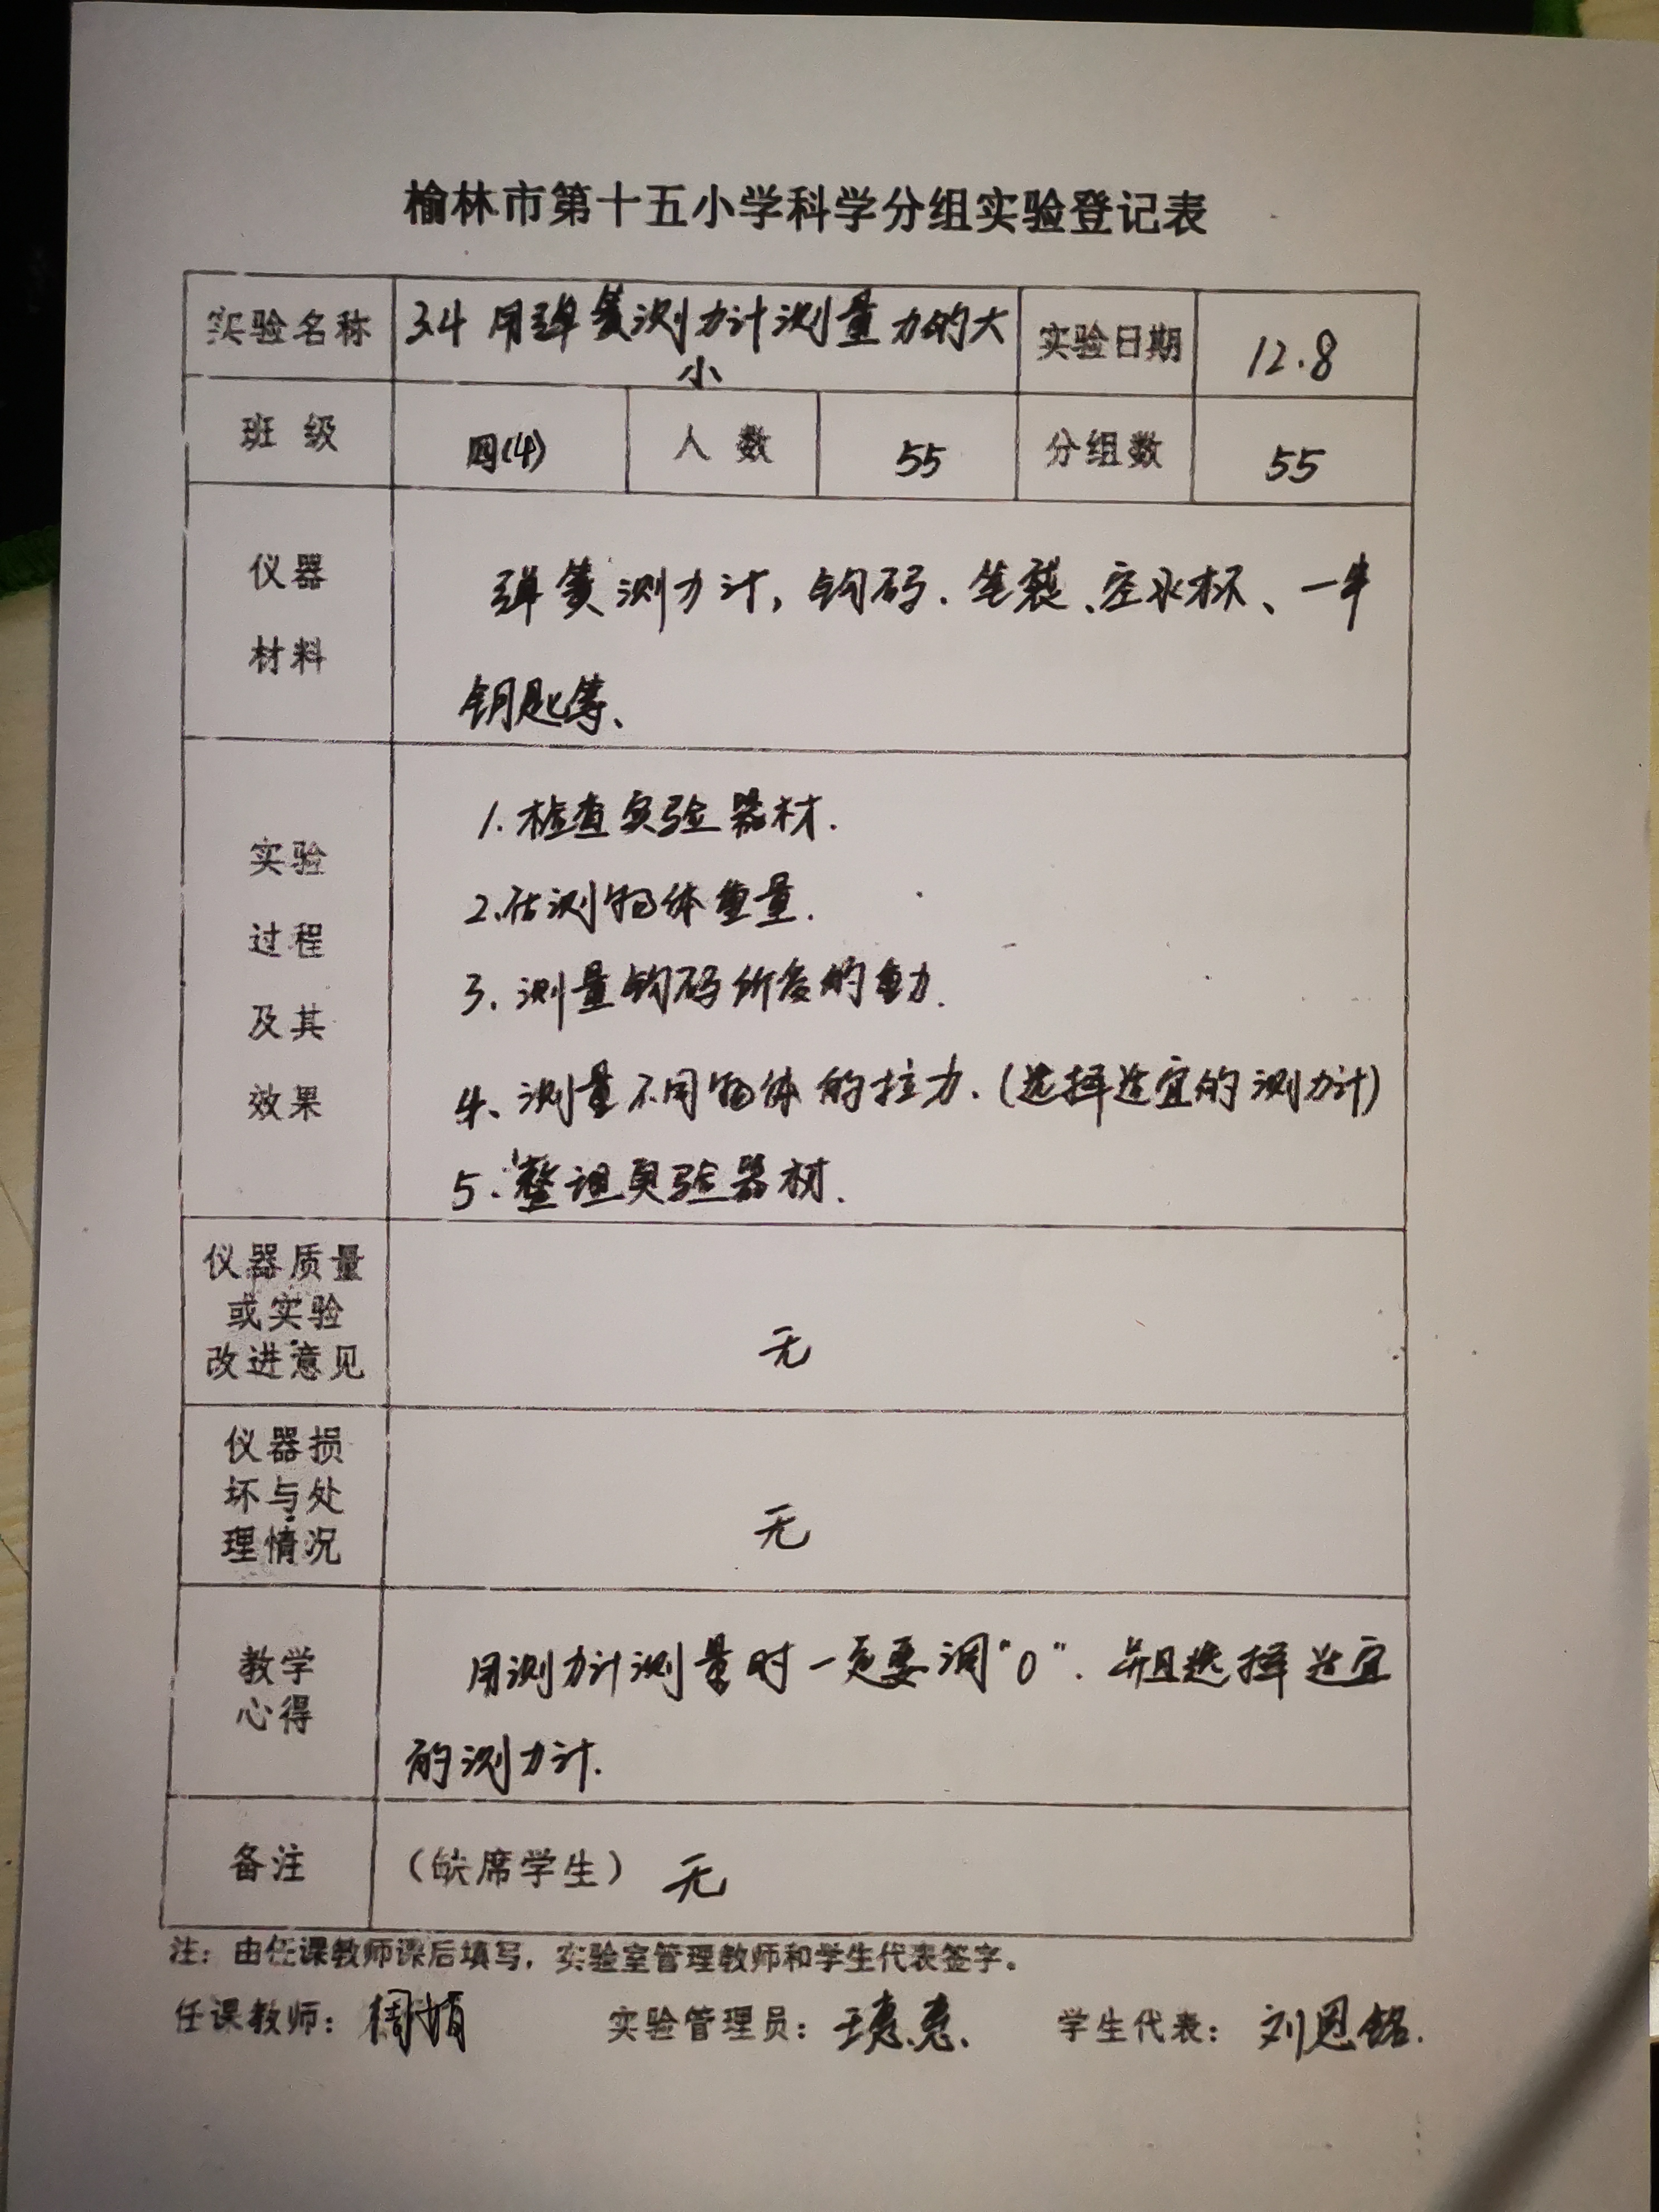 榆林市第十五小学科学分组实验登记表
实验名称 3.4 用弹簧测力计测量力的大
小
实验日期 12.8
班级 四(4) 人数 55 分组数 55
仪器
材料
弹簧测力计, 钩码、笔袋、空水杯、一串
钥匙等、
实验
过程
及其
效果
1. 检查实验器材.
2. 估测物体重量.
3、测量钩码所受的重力.
4、测量不同物体的拉力.(选择适宜的测力计)
5. 整理实验器材.
仪器质量
或实验
改进意见
无
仪器损
坏与处
理情况
无
教学
心得
用测力计测量时一定要调“0”. 并且选择适宜
的测力计.
备注 (缺席学生) 无
注：由任课教师课后填写，实验室管理教师和学生代表签字。
任课教师： 实验管理员： 学生代表：刘恩铭.